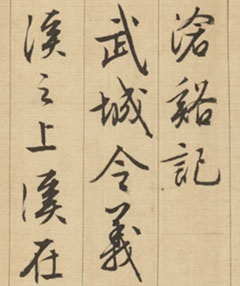 滄谿記
武城令義
溪之上溪在